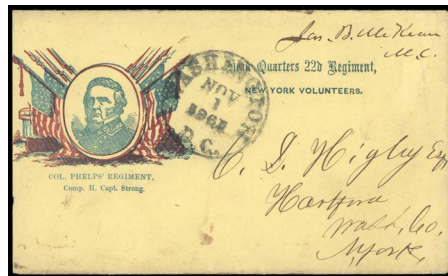 Jas. B. McKean
M.C.
Head Quarters 22d Regiment,
NEW YORK VOLUNTEERS.
WASHINGTON
NOV
1
1861
D.C.
COL. PHELPS' REGIMENT,
Comp. H. Capt. Strong.
C. D. Higby Esq
Hartford
Wash. Co.
N. York